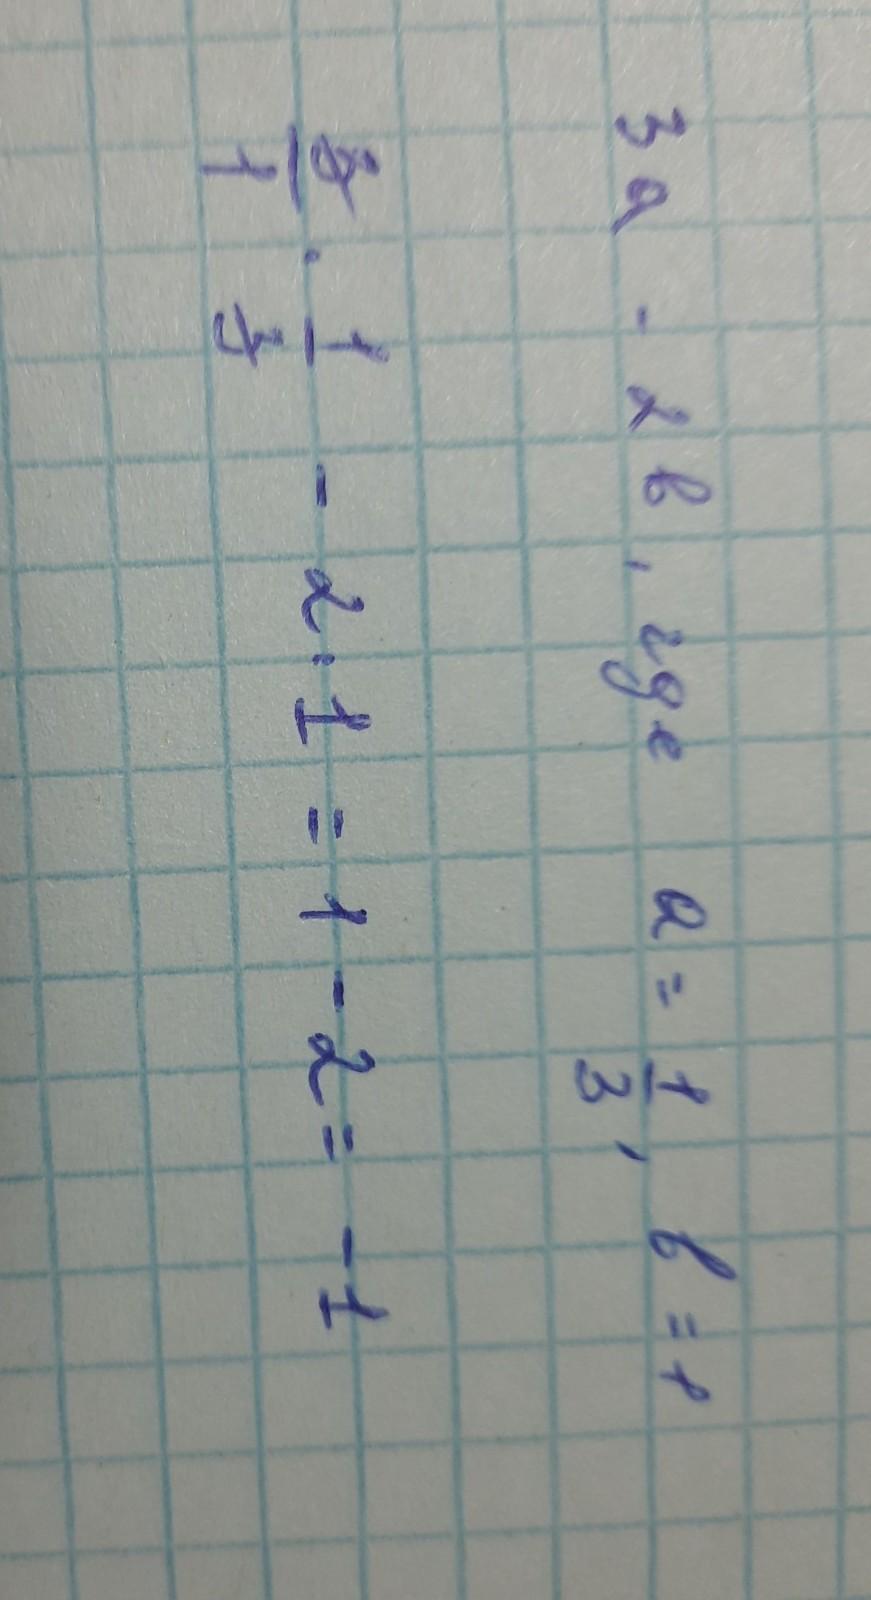 3a - 2b, где a = 1/3, b = 1
3/1 · 1/3 - 2 · 1 = 1 - 2 = -1